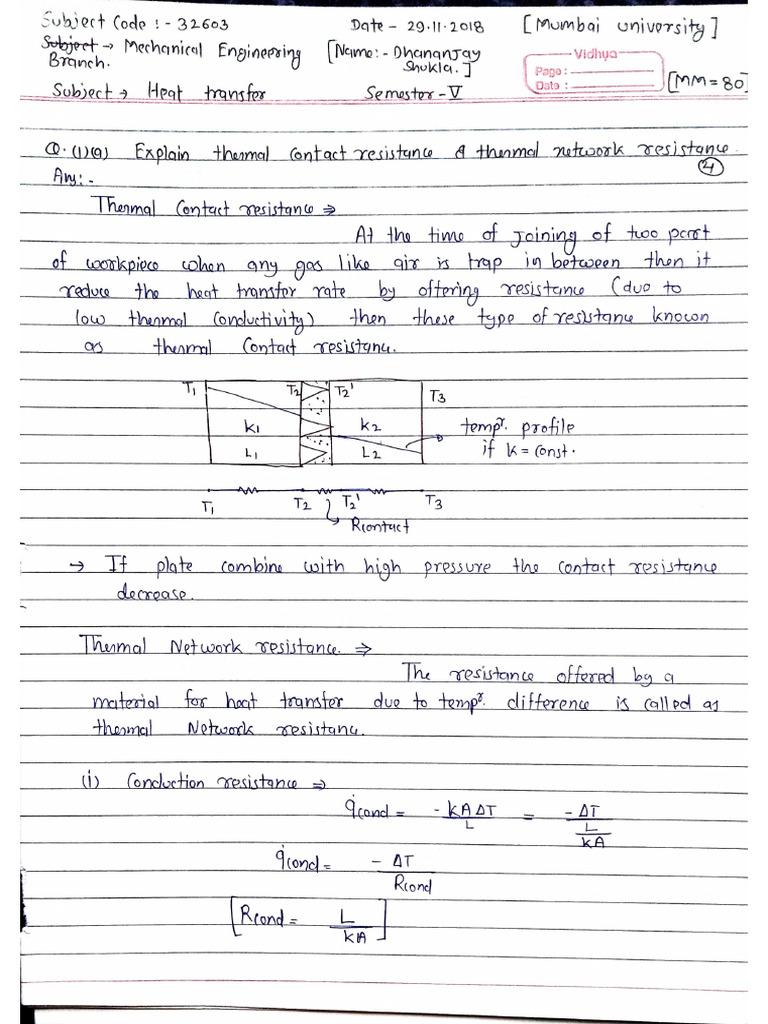 Subject Code :- 32603 Date - 29.11.2018 [Mumbai university]
Subject → Mechanical Engineering [Name:- Dhananjay
Branch. Shukla.]
Vidhya
Page:
Date:
[MM=80]
Subject → Heat transfer Semester - V
Q.(1)(a) Explain thermal contact resistance & thermal network resistance.
(4)
Ans:-
Thermal Contact resistance ⇒
At the time of joining of two part
of workpiece when any gas like air is trap in between then it
reduce the heat transfer rate by offering resistance (due to
low thermal conductivity) then these type of resistance known
as thermal Contact resistance.
T1 T2 T2' T3
K1 K2 tempr. profile
L1 L2 if k = const.
T1 T2 T2' T3
Rcontact
→ If plate combine with high pressure the contact resistance
decrease.
Thermal Network resistance. ⇒
The resistance offered by a
material for heat transfer due to tempr. difference is called as
thermal Network resistance.
(i) Conduction resistance ⇒
q̇cond = -KAΔT/L = -ΔT/(L/KA)
q̇cond = -ΔT/Rcond
[Rcond = L/KA]